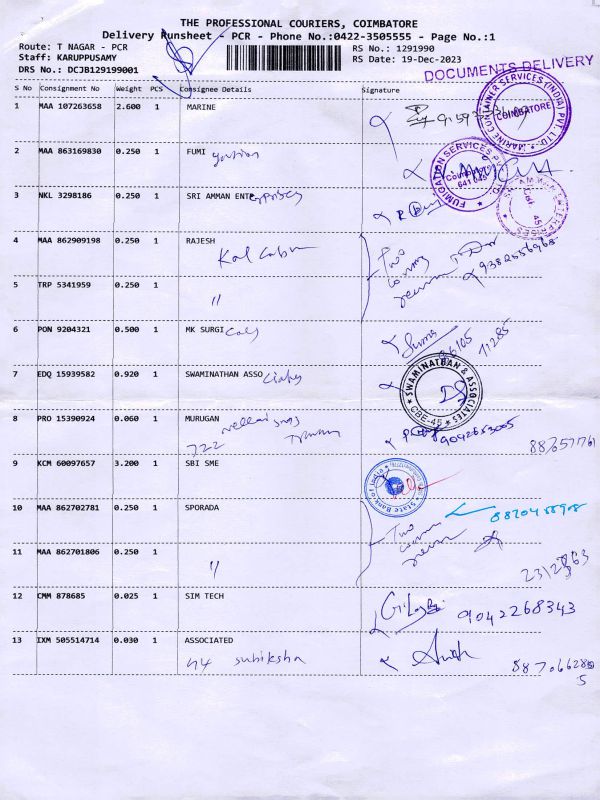 THE PROFESSIONAL COURIERS, COIMBATORE
Delivery Runsheet - PCR - Phone No.:0422-3505555 - Page No.:1
Route: T NAGAR - PCR
RS No.: 1291990
Staff: KARUPPUSAMY
RS Date: 19-Dec-2023
DRS No.: DCJB129199001
DOCUMENTS DELIVERY
S No Consignment No Weight PCS Consignee Details Signature
1 MAA 107263658 2.600 1 MARINE
MARINE CONTAINER SERVICES (INDIA) PVT. LTD.
COIMBATORE
2 MAA 863169830 0.250 1 FUMI
FUMIGATION SERVICES PVT. LTD.
Coimbatore
641 045
3 NKL 3298186 0.250 1 SRI AMMAN ENTerprises
SRI AMMAN ENTERPRISES
CBE 45
4 MAA 862909198 0.250 1 RAJESH
Two
9382556968
5 TRP 5341959 0.250 1 "
6 PON 9204321 0.500 1 MK SURGIcals
71285
7 EDQ 15939582 0.920 1 SWAMINATHAN ASSOciates
SWAMINATHAN & ASSOCIATES
CBE-45
8 PRO 15390924 0.060 1 MURUGAN
722
9042653005
9 KCM 60097657 3.200 1 SBI SME
State Bank of India
10 MAA 862702781 0.250 1 SPORADA
Two
11 MAA 862701806 0.250 1 "
12 CMM 878685 0.025 1 SIM TECH
9042268343
13 IXM 505514714 0.030 1 ASSOCIATED
44 subiksha